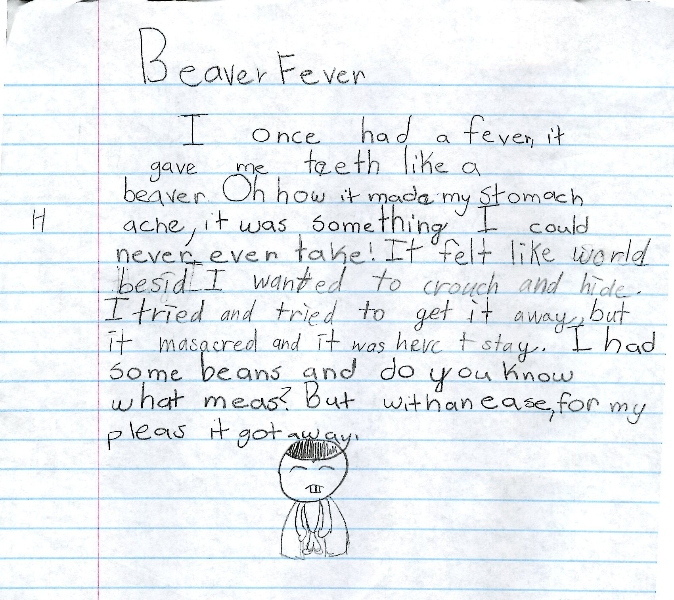 Beaver Fever
I once had a fever, it
gave me teeth like a
beaver. Oh how it made my stomach
H
ache, it was something I could
never, ever take! It felt like world
besid I wanted to crouch and hide.
I tried and tried to get it away, but
it masacred and it was here t stay. I had
some beans and do you know
what meas? But with an ease, for my
pleas it got away.